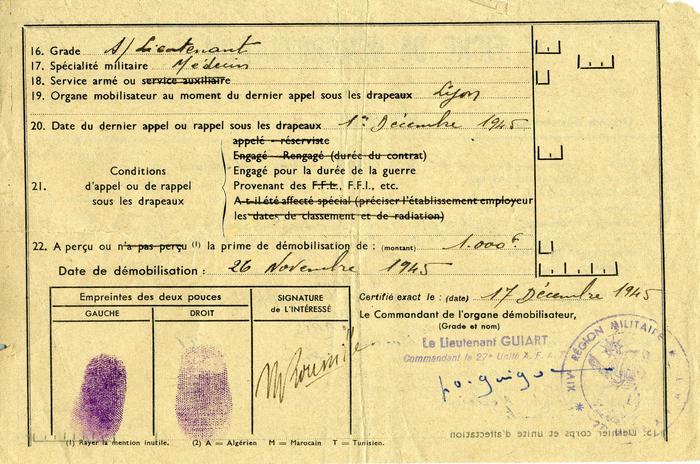 16. Grade S/Lieutenant
17. Spécialité militaire Médecin
18. Service armé ou service auxiliaire
19. Organe mobilisateur au moment du dernier appel sous les drapeaux Lyon
20. Date du dernier appel ou rappel sous les drapeaux 1er Décembre 1945
appelé - réserviste
Engagé - Rengagé (durée du contrat)
Engagé pour la durée de la guerre
21. Conditions d'appel ou de rappel sous les drapeaux
Provenant des F.F.L., F.F.I., etc.
A-t-il été affecté spécial (préciser l'établissement employeur
les dates de classement et de radiation)
22. A perçu ou n'a pas perçu (1) la prime de démobilisation de : (montant) 1.000 f.
Date de démobilisation : 26 Novembre 1945
Empreintes des deux pouces
GAUCHE DROIT
SIGNATURE
de L'INTÉRESSÉ
Certifié exact le : (date) 17 Décembre 1945
Le Commandant de l'organe démobilisateur,
(Grade et nom)
Le Lieutenant GUIART
Commandant le 27e Unité
XIVe RÉGION MILITAIRE
(1) Rayer la mention inutile. (2) A = Algérien M = Marocain T = Tunisien.
15. Dernier corps et unité d'affectation